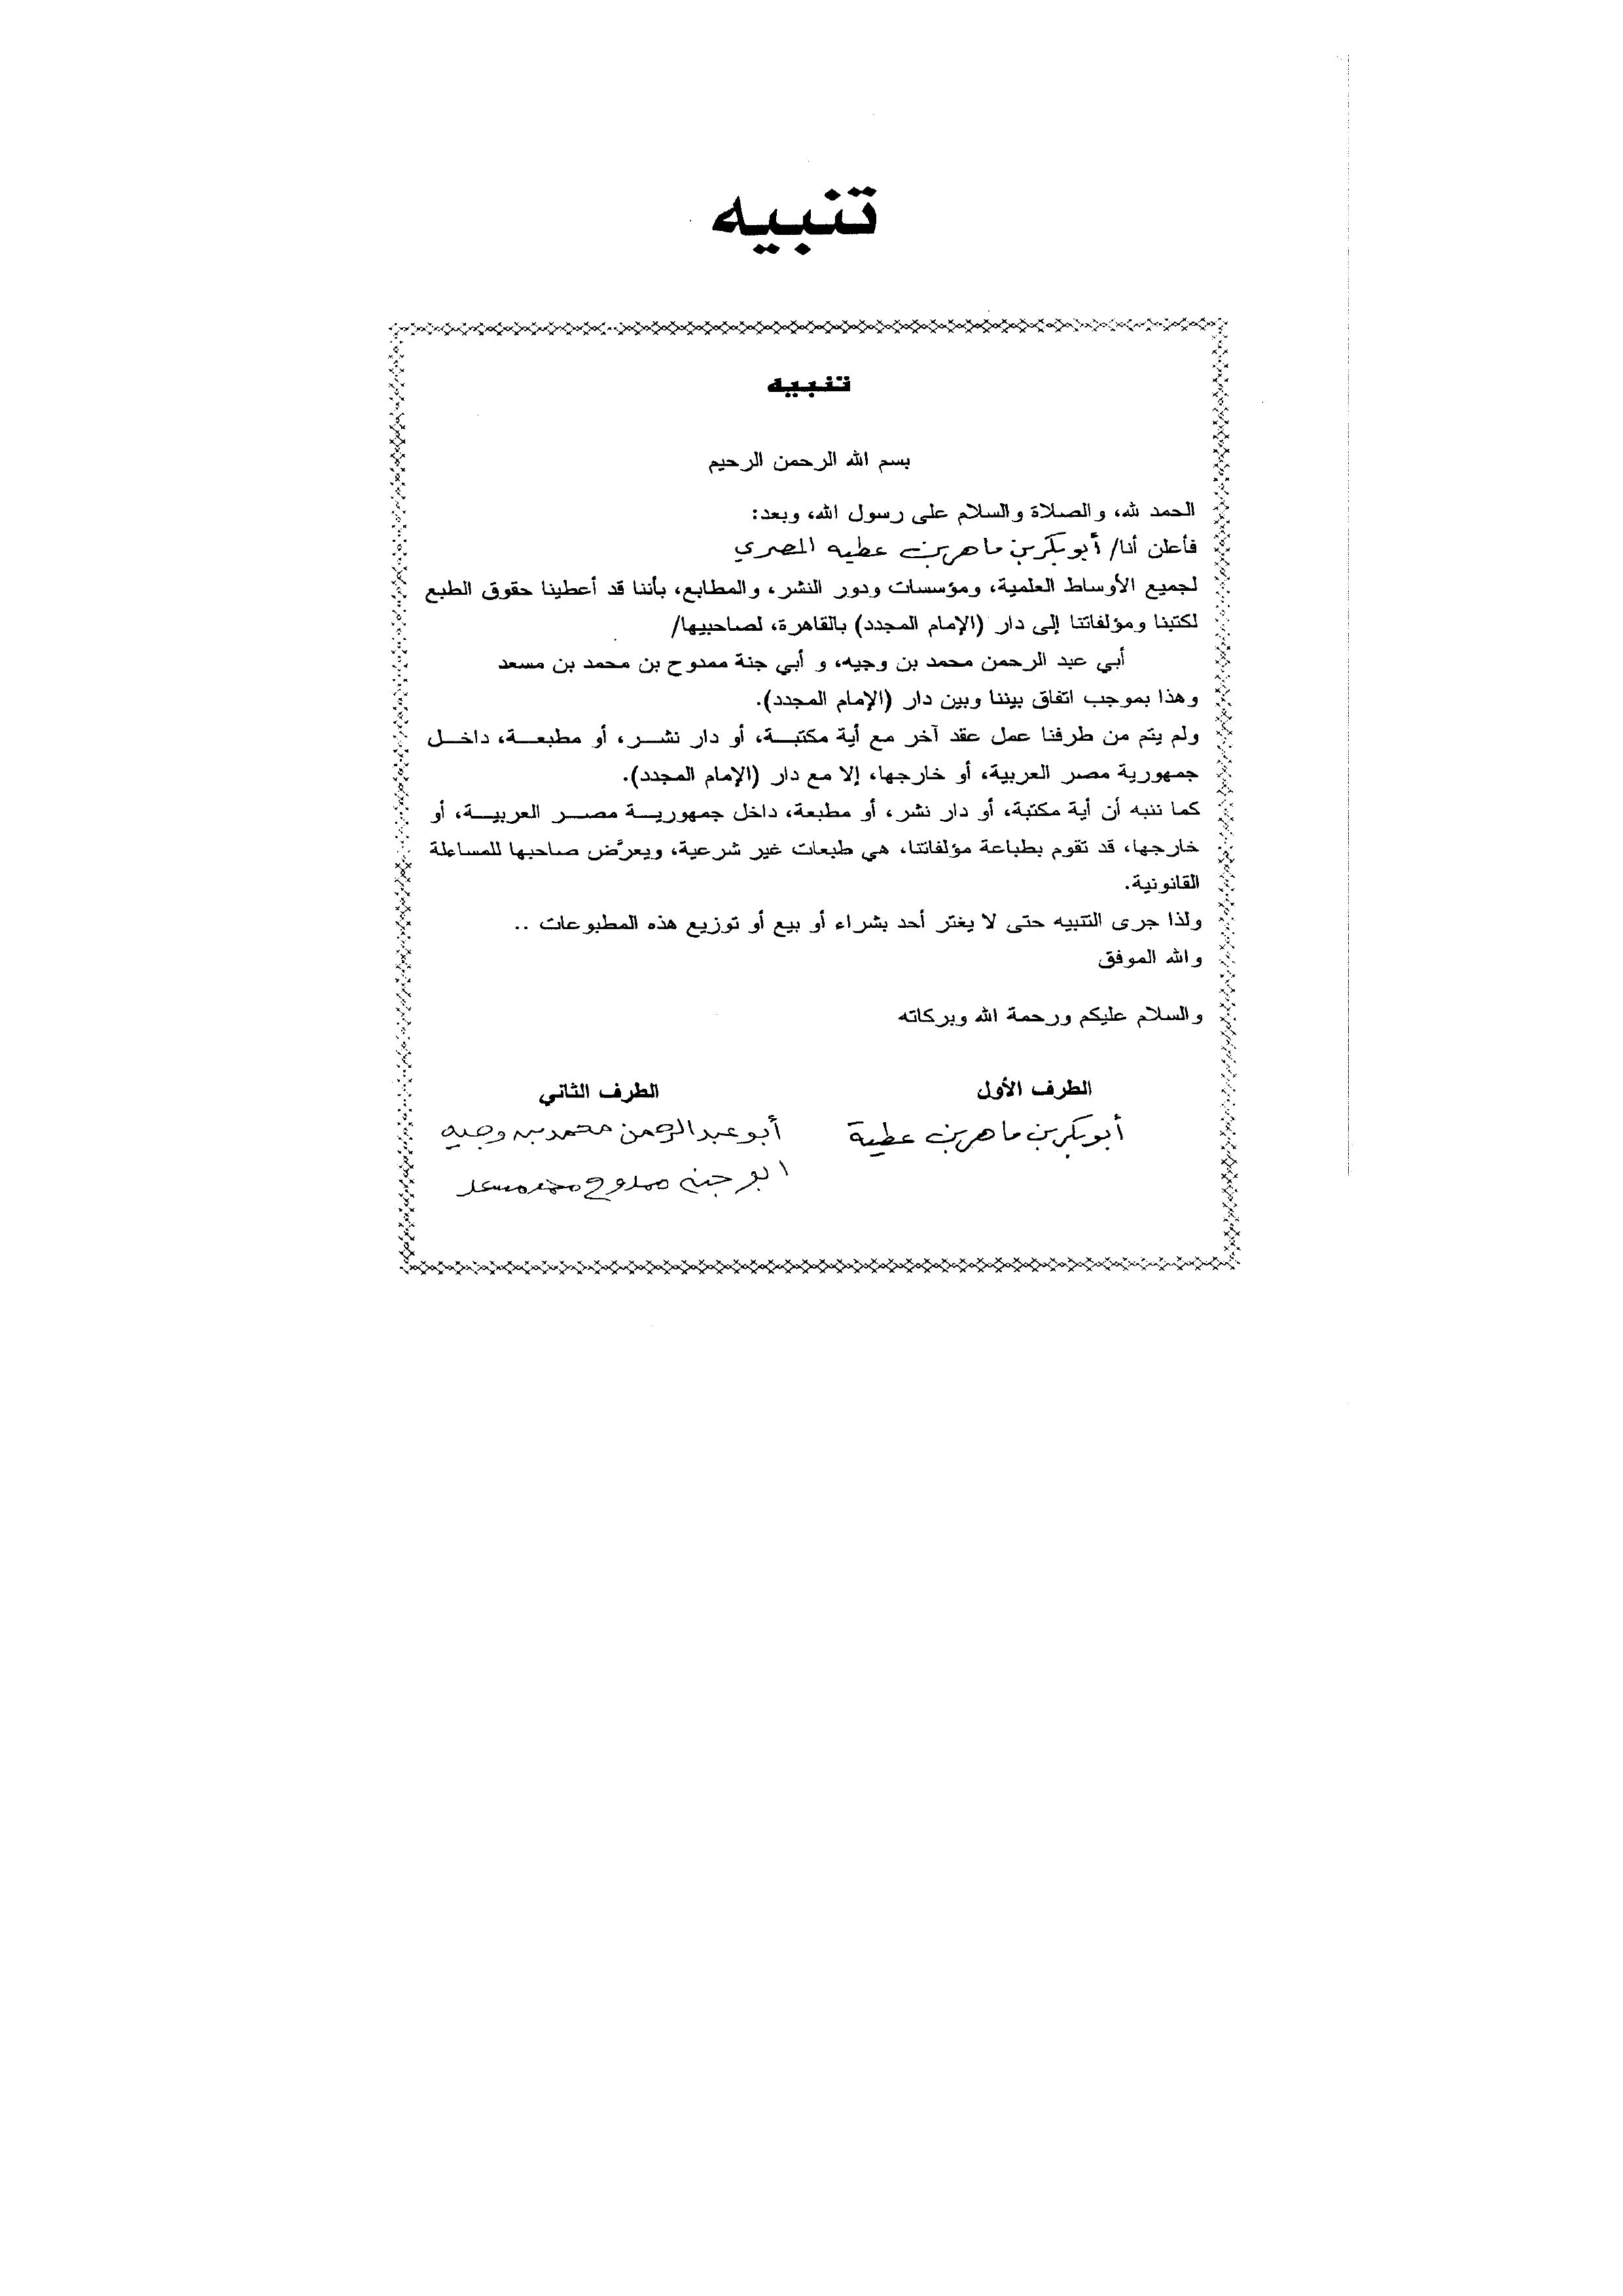 تنبيه
تنبيه
بسم الله الرحمن الرحيم
الحمد لله، والصلاة والسلام على رسول الله، وبعد:
فأعلن أنا/ أبو بكر بن ماهر بن عطيه المصري
لجميع الأوساط العلمية، ومؤسسات ودور النشر، والمطابع، بأننا قد أعطينا حقوق الطبع
لكتبنا ومؤلفاتنا إلى دار (الإمام المجدد) بالقاهرة، لصاحبيها/
أبي عبد الرحمن محمد بن وجيه، و أبي جنة ممدوح بن محمد بن مسعد
وهذا بموجب اتفاق بيننا وبين دار (الإمام المجدد).
ولم يتم من طرفنا عمل عقد آخر مع أية مكتبـــة، أو دار نشـــر، أو مطبعـــة، داخـــل
جمهورية مصر العربية، أو خارجها، إلا مع دار (الإمام المجدد).
كما ننبه أن أية مكتبة، أو دار نشر، أو مطبعة، داخل جمهوريـــة مصـــر العربيـــة، أو
خارجها، قد تقوم بطباعة مؤلفاتنا، هي طبعات غير شرعية، ويعرَّض صاحبها للمساءلة
القانونية.
ولذا جرى التنبيه حتى لا يغتر أحد بشراء أو بيع أو توزيع هذه المطبوعات ..
والله الموفق
والسلام عليكم ورحمة الله وبركاته
الطرف الأول
الطرف الثاني
أبو بكر بن ماهر بن عطية
أبو عبد الرحمن محمد بن وجيه
ابو جنه ممدوح محمد مسعد